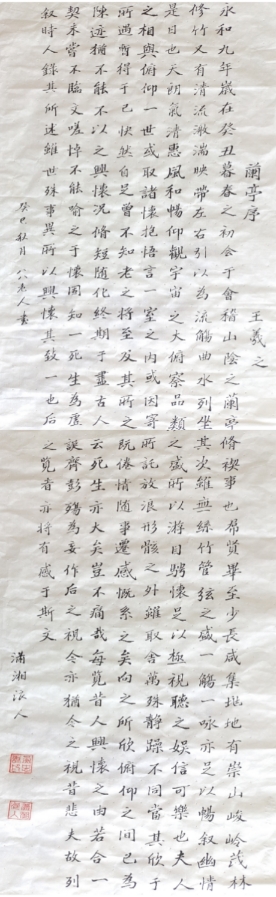 蘭亭序 王羲之
永和九年歲在癸丑暮春之初会于會稽山陰之蘭亭脩禊事也羣賢畢至少長咸集此地有崇山峻嶺茂林
修竹又有清流激湍映帶左右引以為流觴曲水列坐其次雖無絲竹管弦之盛一觴一咏亦足以暢叙幽情
是日也天朗氣清惠風和暢仰觀宇宙之大俯察品類之盛所以游目騁懷足以極視聽之娛信可樂也夫人
之相與俯仰一世或取諸懷抱悟言一室之內或因寄所託放浪形骸之外雖取舍萬殊靜躁不同當其欣于
所遇暫得于己快然自足曾不知老之將至及其所之既倦情随事遷感慨系之矣向之所欣俯仰之間已為
陳迹猶不能不以之興懷况脩短随化終期于盡古人云死生亦大矣豈不痛哉每覽昔人興懷之由若合一
契未嘗不臨文嗟悼不能喻之于懷固知一死生為虛誕齊彭殤為妄作后之視今亦猶今之視昔悲夫故列
叙時人錄其所述雖世殊事異所以興懷其致一也后之覽者亦將有感于斯文
癸巳秋月 老人書
瀟湘浪人